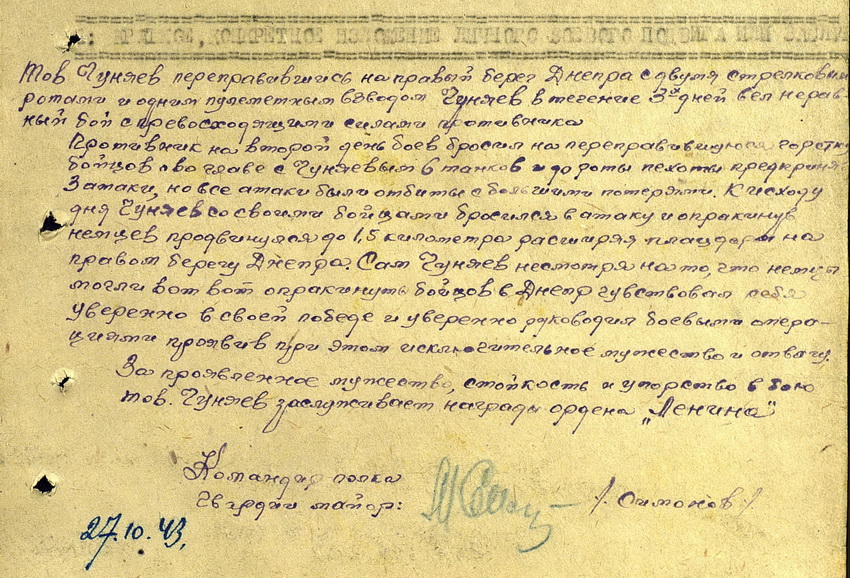 КРАТКОЕ, КОНКРЕТНОЕ ИЗЛОЖЕНИЕ ЛИЧНОГО БОЕВОГО ПОДВИГА ИЛИ ЗАСЛУГ
Тов Чуняев переправавшись на правый берег Днепра с двумя стрелковым
ротами и одним пулеметным взводом Чуняев в течение 3х дней вел нерав-
ный бой с превосходящими силами противника
Противник на второй день боев бросил на переправившуюся горстку
бойцов во главе с Чуняевым 6 танков и до роты пехоты предприня
3 атаки, но все атаки были отбиты с большими потерями. К исходу
дня Чуняев со своими бойцами бросился в атаку и опракинув
немцев продвинулся до 1,5 километра расширяя плацдарм на
правом берегу Днепра. Сам Чуняев несмотря на то, что немцы
могли вот вот опракинуть бойцов в Днепр чувствовал себя
уверенно в своей победе и уверенно руководил боевыми опера-
циями проявив при этом исключительное мужество и отвагу.
За проявленное мужество, стойкость и упорство в бою
тов. Чуняев заслуживает награды ордена „Ленина"
Командир полка
Гвардии майор: /Симонов/
27.10.43.